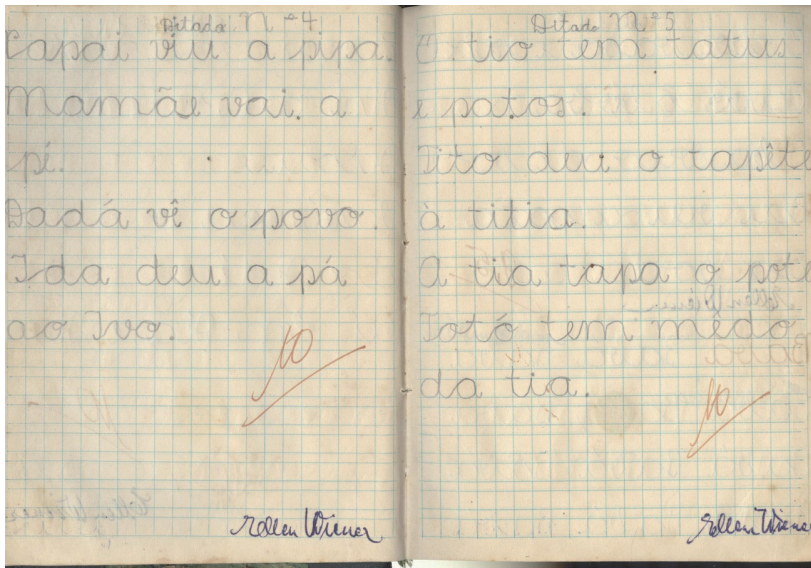 Ditado Nº 4
Papai viu a pipa.
Mamãe vai a
pé.
Dadá vê o povo.
Ida deu a pá
ao Ivo.
10
Ellen Wiener
Ditado Nº 5
O tio tem tatus
e patos.
Tito deu o tapête
à titia.
A tia tapa o pote
Totó tem mêdo
da tia.
10
Ellen Wiener